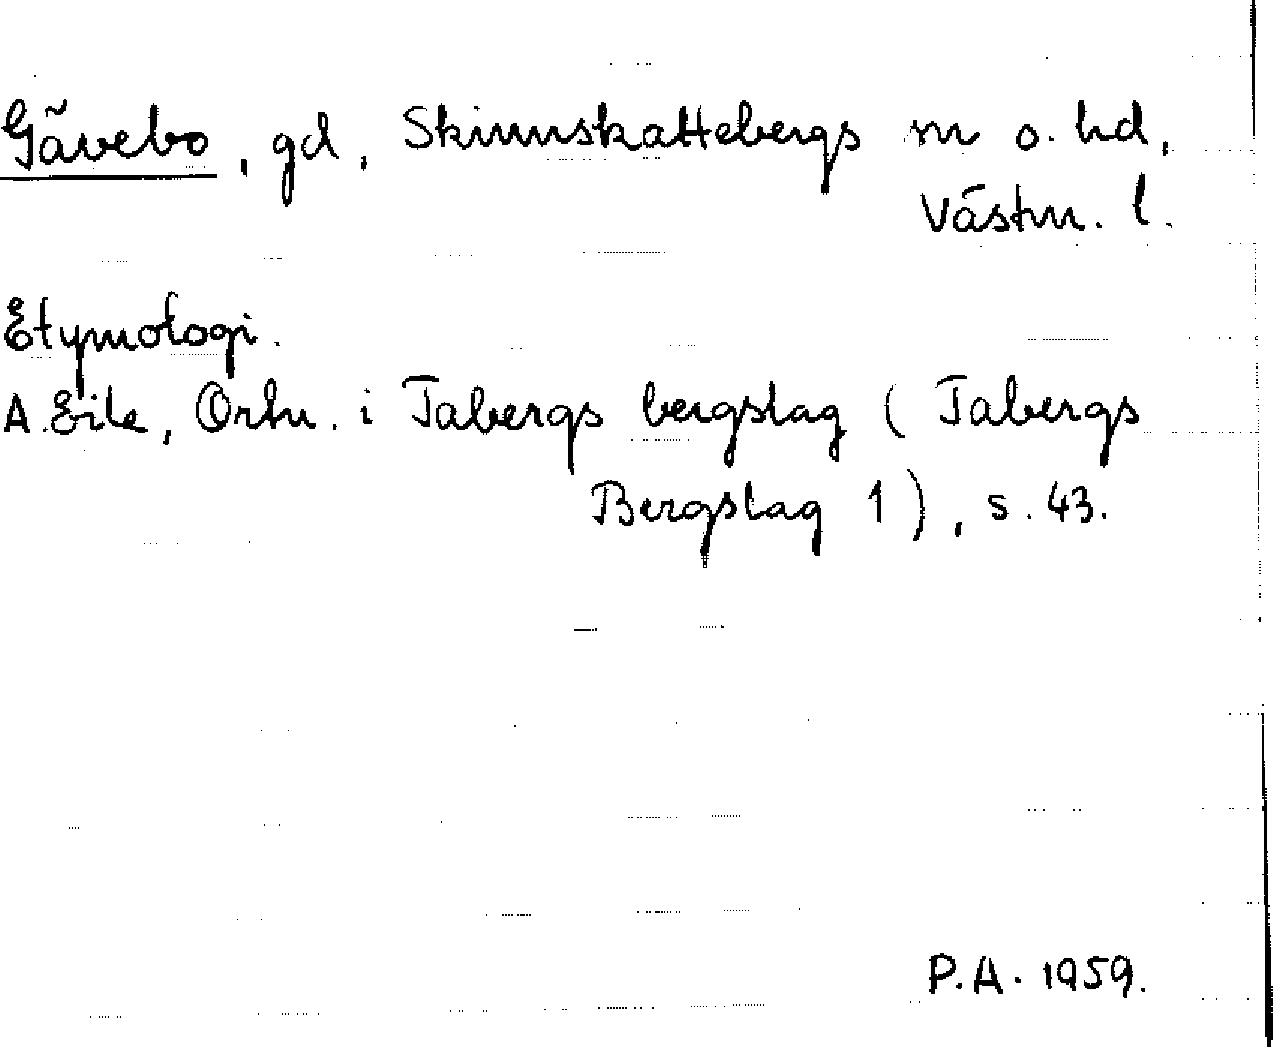 Gävebo, gd, Skinnskattebergs sn o. hd,
Västm. l.
Etymologi.
A. Eile, Ortn. i Tabergs bergslag (Tabergs
Bergslag 1), s. 43.
P.A. 1959.